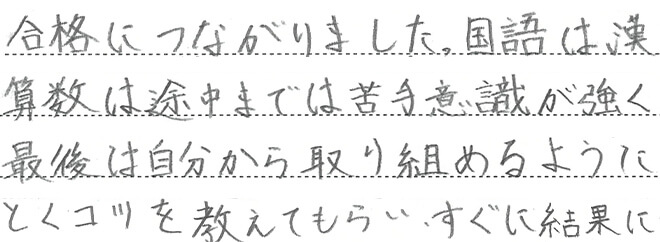 合格につながりました。国語は漢
算数は途中までは苦手意識が強く
最後は自分から取り組めるように
とくコツを教えてもらい、すぐに結果に